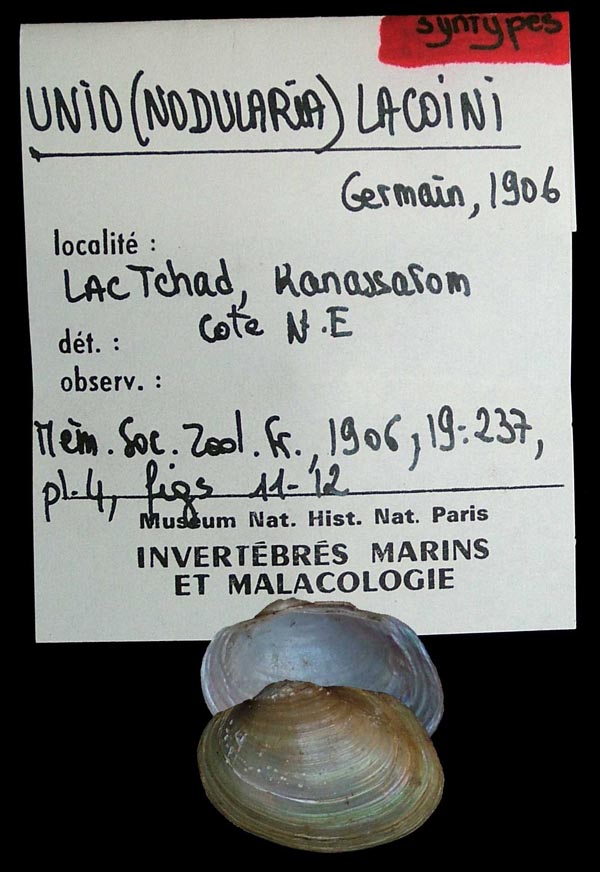 syntypes
UNIO (NODULARIA) LACOINI
Germain, 1906
localité :
LAC Tchad, Kanassarom
Cote N.E
dét. :
observ. :
Mém. Soc. Zool. Fr., 1906, 19: 237,
pl. 4, figs 11-12
Muséum Nat. Hist. Nat. Paris
INVERTÉBRÉS MARINS
ET MALACOLOGIE